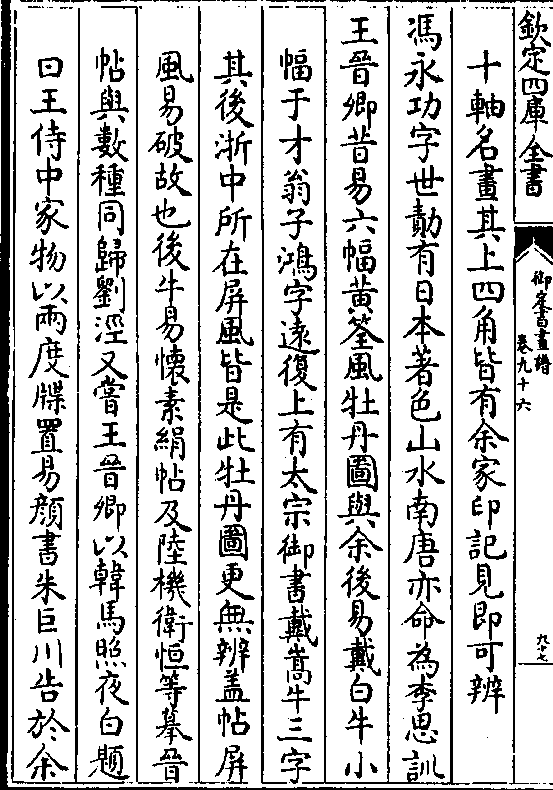 欽定四庫全書
御定書畫譜
卷九十六
九十七
十軸名畫其上四角皆有余家印記見即可辨
馮永功字世勣有日本著色山水南唐亦命為李思訓
王晉卿昔易六幅黃筌風牡丹圖與余後易戴白牛小
幅于才翁子鴻字遠復上有太宗御書戴嵩牛三字
其後浙中所在屏風皆是此牡丹圖更無辨蓋帖屏
風易破故也後牛易懷素絹帖及陸機衛恒等摹晉
帖與數種同歸劉涇又嘗王晉卿以韓馬照夜白題
曰王侍中家物以兩度牒置易顏書朱巨川告於余